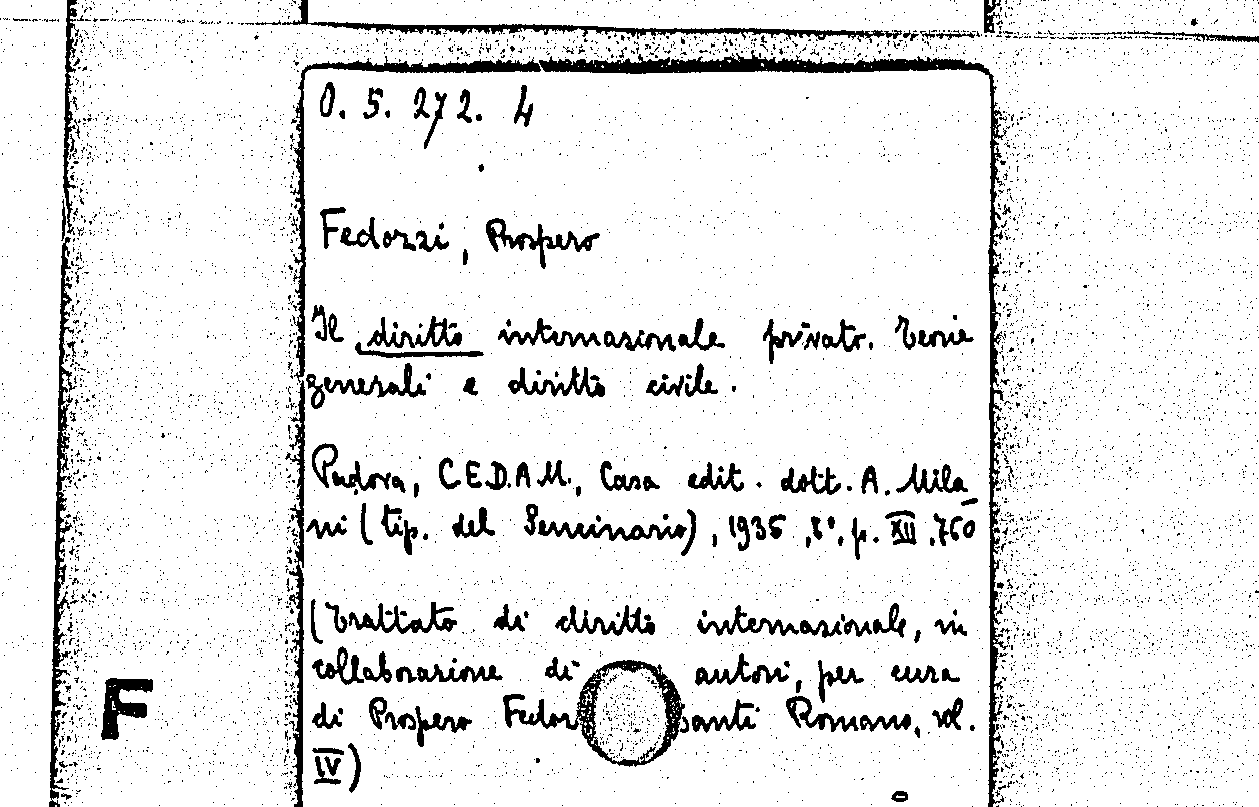 O. 5. 272. 4
Fedozzi, Prospero
Il diritto internazionale privato. Teorie
generali e diritto civile.
Padova, C.E.D.A.M., Casa edit. dott. A. Mila_
ni (tip. del Seminario), 1935, 8°, p. XII, 760
(Trattato di diritto internazionale, in
collaborazione di autori, per cura
di Prospero Fedoz santi Romano, vol.
IV)
F